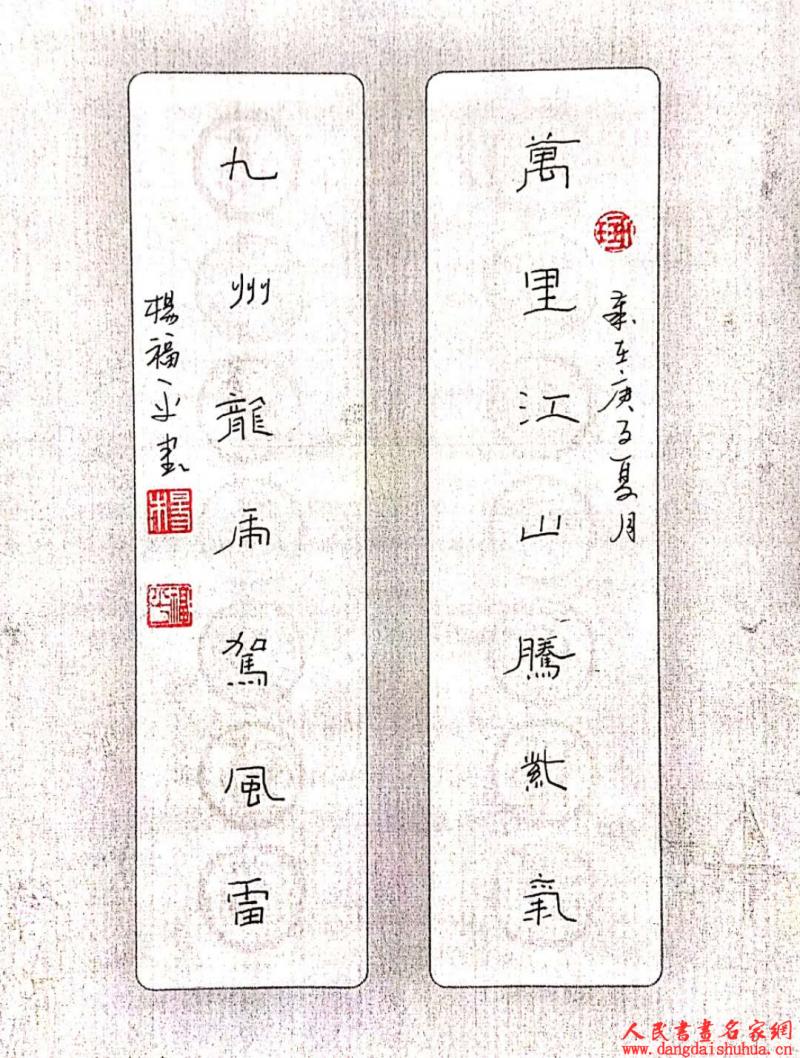 萬里江山騰紫氣
歲在庚子夏月
九州龍虎駕風雷
楊福平書
楊
福平
人民書畫名家網
www.dangdaishuhua.com.cn